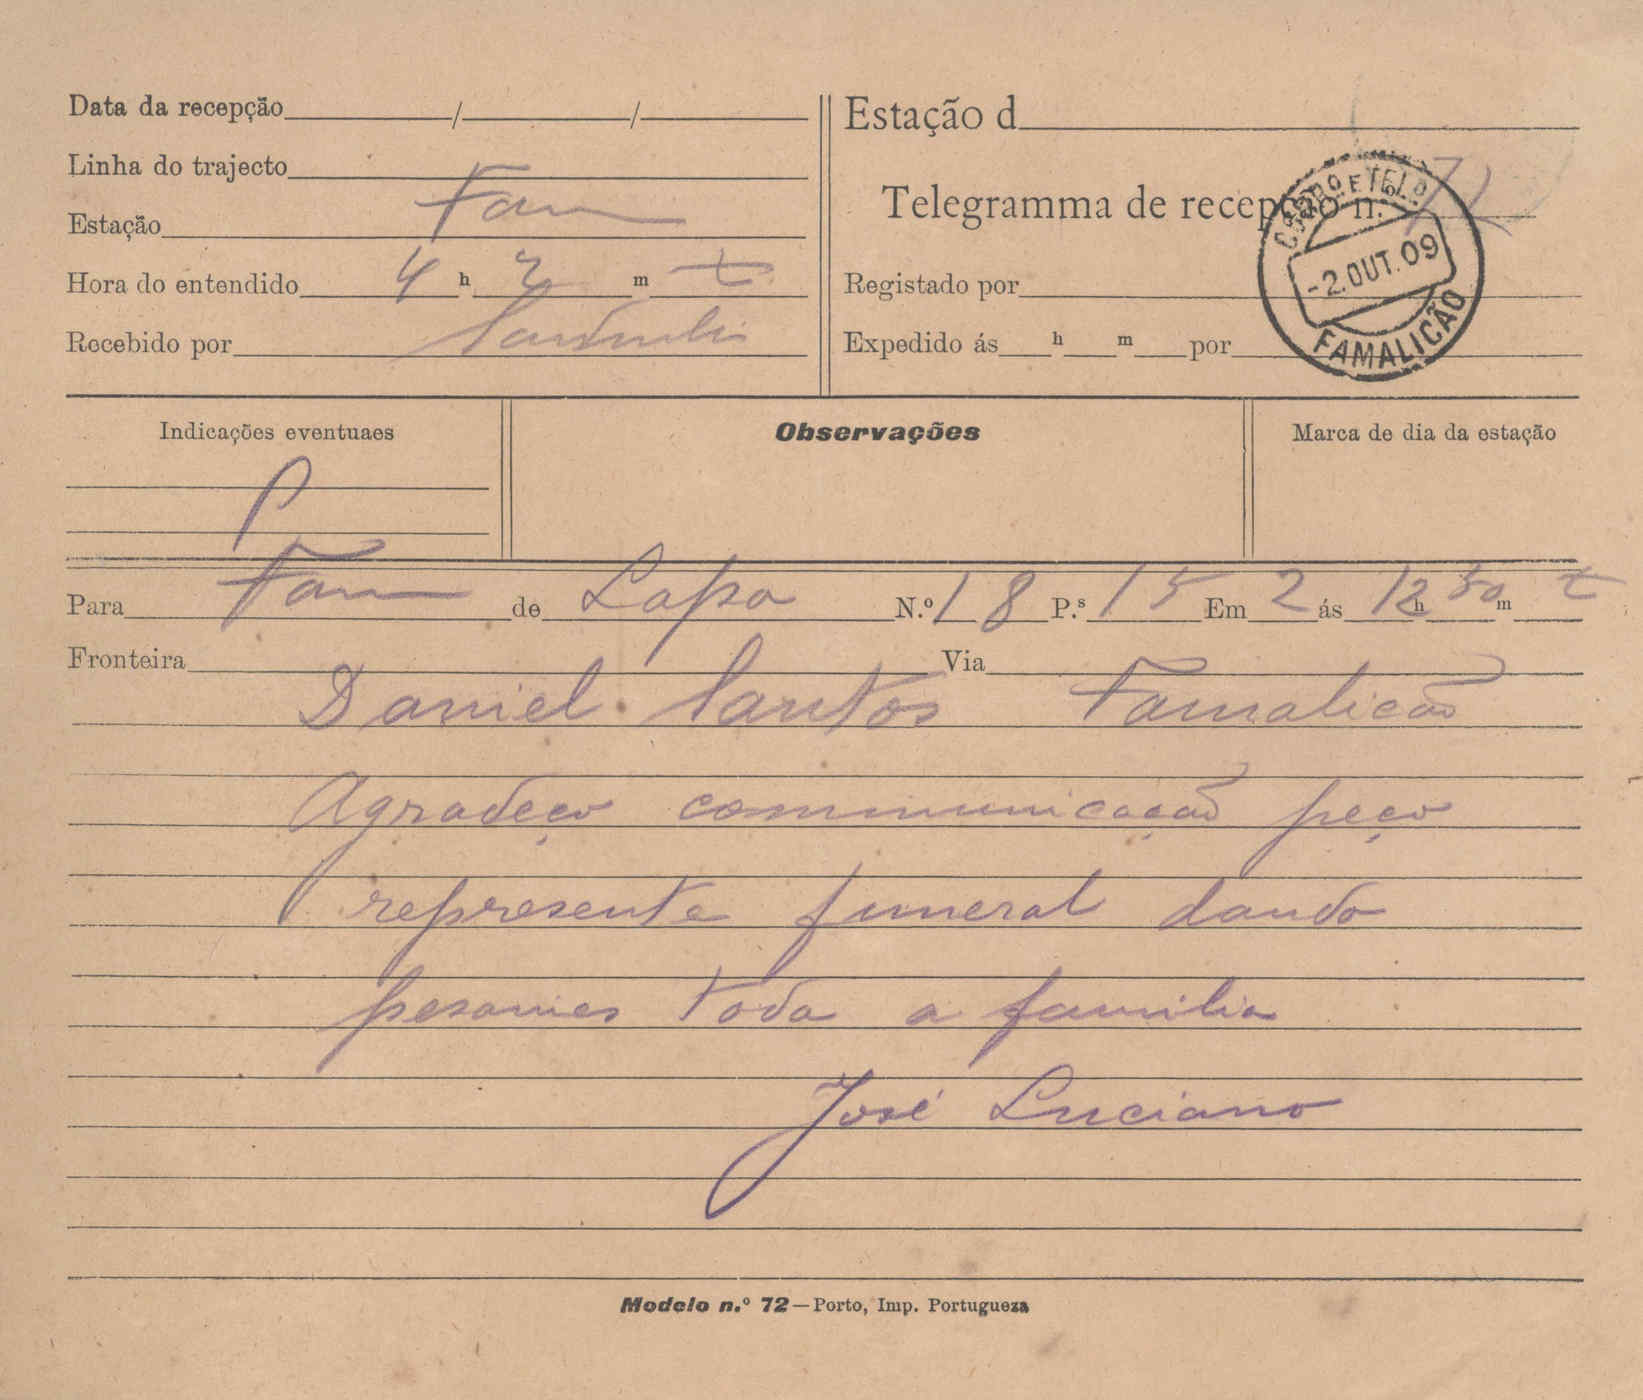 Data da recepção / /
Linha do trajecto
Estação Fam
Hora do entendido 4 h 2 m t
Recebido por
Estação d
Telegramma de recepção n.º
Registado por
Expedido ás h m por
CORREIO E TELO
-2.OUT.09
FAMALICÃO
Indicações eventuaes
P
Observações
Marca de dia da estação
Para Fam de Lapa N.º 18 P.s 15 Em 2 ás 12 h 50 m t
Fronteira Via
Daniel Santos Famalicão
Agradeço communicação peço
represente funeral dando
pesames toda a familia
José Luciano
Modelo n.º 72—Porto, Imp. Portugueza